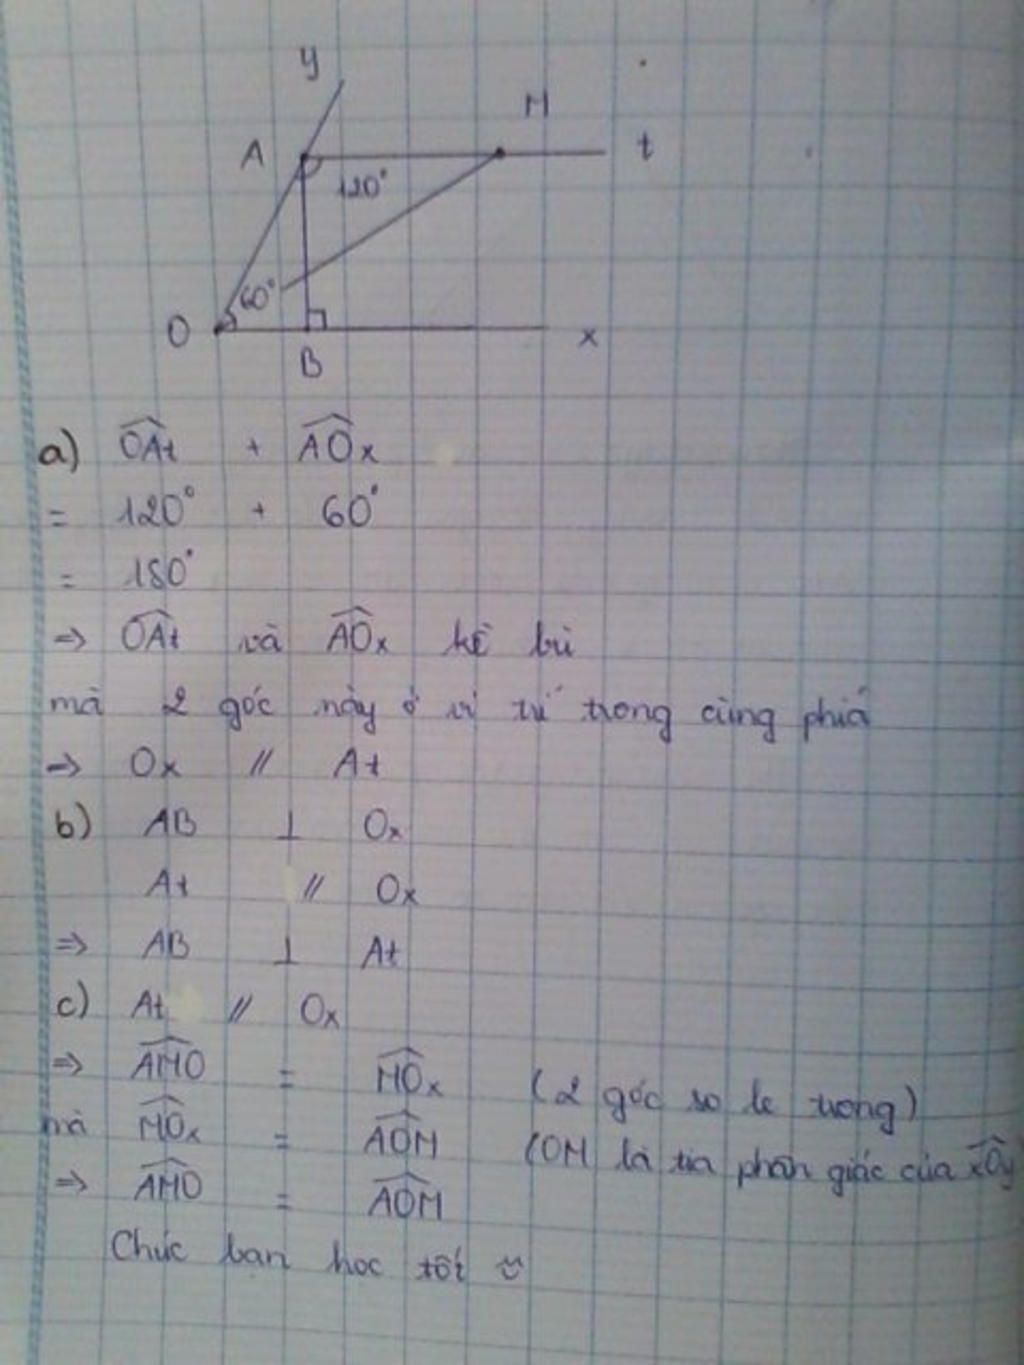 y
M
A
t
120°
60°
O
x
B
a) OAt + AOx
= 120° + 60°
= 180°
=> OAt và AOx kề bù
mà 2 góc này ở vị trí trong cùng phía
=> Ox // At
b) AB ⊥ Ox
At // Ox
=> AB ⊥ At
c) At // Ox
=> AMO = MOx (2 góc so le trong)
mà MOx = AOM (OM là tia phân giác của xOy
=> AMO = AOM
Chúc bạn học tốt